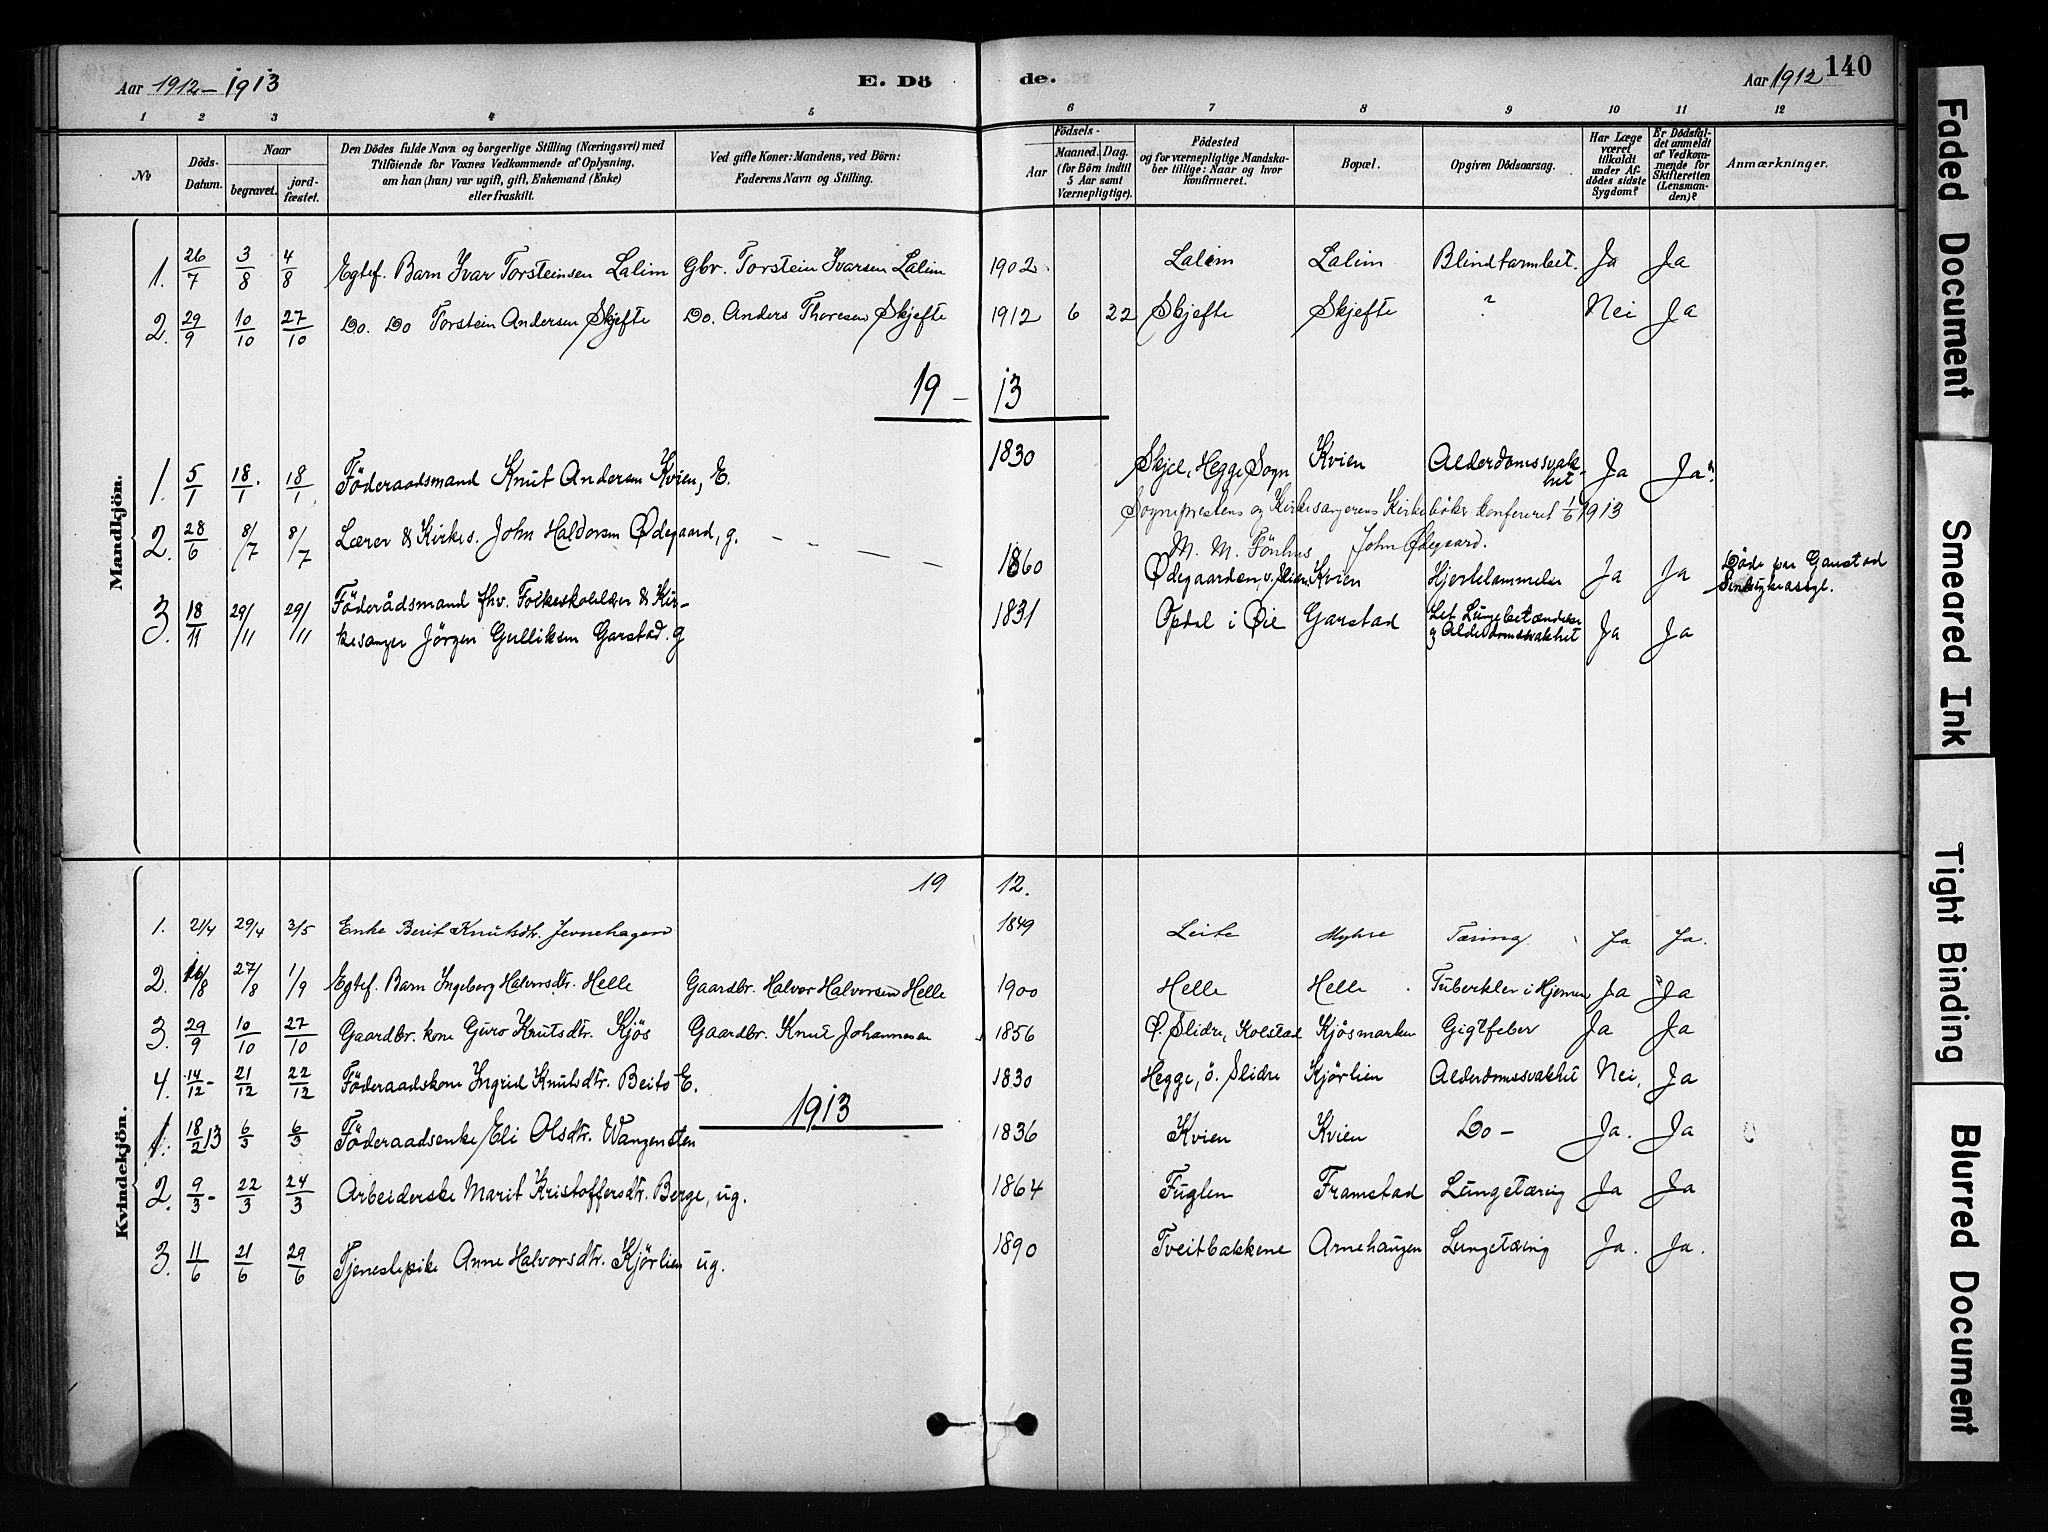 Aar 1912-1913
E. Dö
de.
Aar 1912
140
1 2 3 4 5 6 7 8 9 10 11 12
No
Döds-Datum.
Naar
begravet.
jord-fæstet.
Den Dödes fulde Navn og borgerlige Stilling (Næringsvei) med
Tilföiende for Voxnes Vedkommende af Oplysning,
om han (hun) var ugift, gift, Enkemand (Enke)
eller fraskilt.
Ved gifte Koner: Mandens, ved Börn:
Faderens Navn og Stilling.
Födsels-
Aar
Maaned. Dag.
(for Börn indtil
5 Aar samt
Værnepligtige).
Födested
og for værnepligtige Mandska-
ber tillige: Naar og hvor
konfirmeret.
Bopæl.
Opgiven Dödsaarsag.
Har Læge
været
tilkaldt
under Af-
dödes sidste
Sygdom?
Er Dödsfal-
det anmeldt
af Vedkom-
mende for
Skifteretten
(Lensman-
den)?
Anmærkninger.
Mandkjön.
1. 26/7 3/8 4/8 Egtef. Barn Ivar Torsteinsen Lalim Gbr. Torstein Ivarsen Lalim 1902 Lalim Lalim Blindtarmbet. Ja Ja
2. 29/9 10/10 27/10 Do. Do Torstein Andersen Skjefte Do. Anders Thoresen Skjefte 1912 6 22 Skjefte Skjefte ? Nei Ja
19 - 13
1. 5/1 18/1 18/1 Föderaadsmand Knut Andersen Kvien, E. 1830 Skjel, Hegge Sogn Kvien Alderdomssvak-
het Ja Ja
Sogneprestens og Kirkesangerens Kirkebøker konfereret 1/6 1913
M. M. Fönhus John Ødegaard.
2. 28/6 8/7 8/7 Lærer & Kirkes. John Haldorsen Ødegaard, g. 1860 Ødegaarden, v. Slidre Kvien Hjertelammelse Ja Ja Döde paa Gaustad
Sindsykeasyl.
3. 18/11 29/11 29/11 Föderådsmand fhv. Folkeskolelærer & Kir-
kesanger Jörgen Gulliksen Garstad. g 1831 Opdal i Øie Garstad Let Lungebetændelse
og Alderdomssvakhet Ja Ja
Kvindekjön.
19 12.
1. 21/4 29/4 3/5 Enke Berit Knutsdtr. Jevnehagen 1849 Leite Myhre Tæring Ja Ja.
2. 16/8 27/8 1/9 Egtef. Barn Ingeberg Halvorsdtr. Helle Gaardbr. Halvor Halvorsen Helle 1900 Helle Helle Tuberkler i Hjernen Ja Ja
3. 29/9 10/10 27/10 Gaardbr. kone Guro Knutsdtr. Kjös Gaardbr. Knut Johannesen 1856 Ø. Slidre, Kolstad Kjösmarken Gigtfeber Ja Ja
4. 14/12 - 21/12 22/12 Föderaadskone Ingrid Knutsdtr. Beito E. 1830 Hegge, ö. Slidre Kjörlien Alderdomssvakhet Nei, Ja
1913
1. 18/2 13 6/3 6/3 Föderaadsenke Eli Olsdtr. Wangensten 1836 Kvien Kvien Do - Ja. Ja
2. 9/3 - 22/3 24/3 Arbeiderske Marit Kristoffersdtr. Berge, ug. 1864 Fuglen Framstad Lungetæring Ja Ja
3. 11/6 21/6 29/6 Tjenestepike Anne Halvorsdtr. Kjörlien ug. 1890 Tveitbakkene Arnehaugen Lungetæring Ja. Ja.
Faded Document
Smeared Ink
Tight Binding
Blurred Document